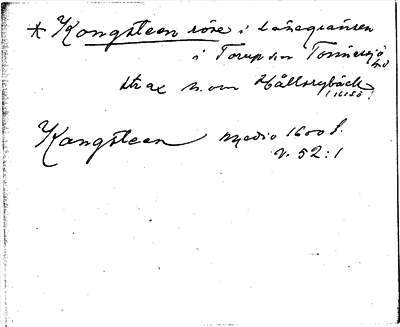 * Kongsteen röse i länegränsen
i Torup sn Tönnersjö hd
strax n. om Hållsrybäck
(1658)
Kongsteen medio 1600 t.
v. 52:1